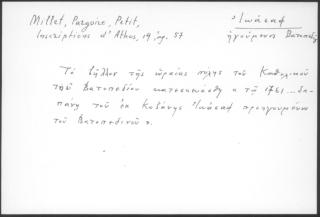 Millet, Pargoire, Petit,
Inscriptions d'Athos, 19, ἀρ. 57
Ἰωάσαφ
ἡγούμενος Βατοπεδ
Τὸ βῆλον τῆς ὡραίας πύλης τοῦ Καθολικοῦ
τοῦ Βατοπεδίου κατεσκευάσθη τῷ 1761 ... δα-
πάνῃ τοῦ ἐκ Κοζάνης Ἰωάσαφ προηγουμένου
τοῦ Βατοπεδινοῦ».